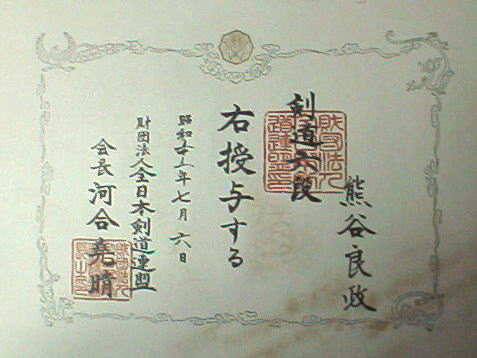 熊谷良政
剣道六段
右授与する
昭和 年七月六日
財団法人全日本剣道連盟
会長 河合堯晴